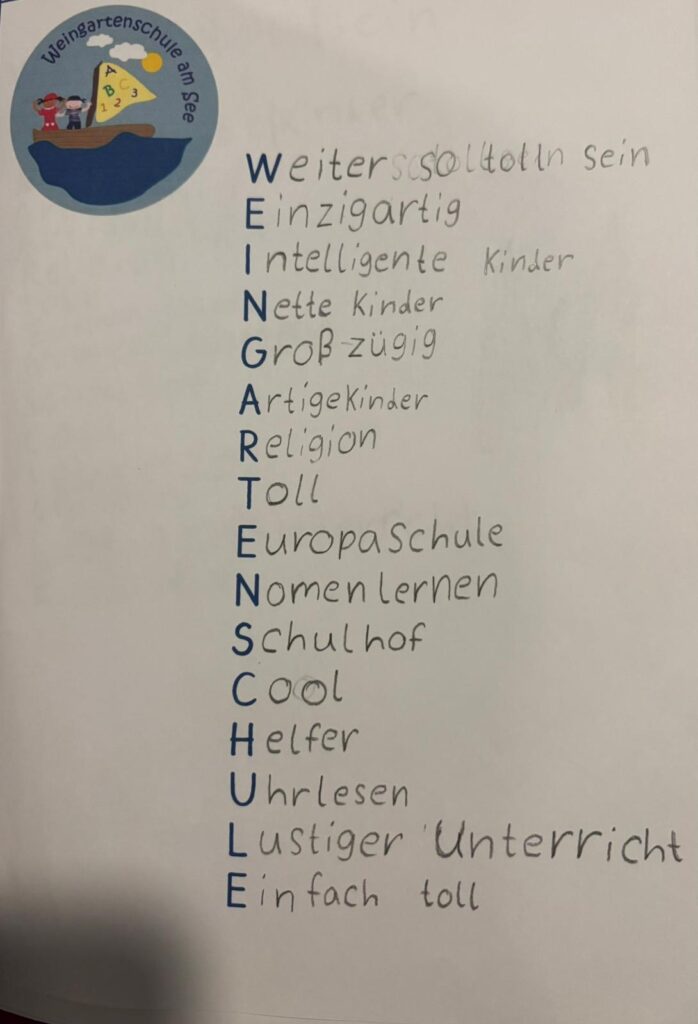 Weingartenschule am See
A
B C
1 2 3
Weiter so toll sein
Einzigartig
Intelligente Kinder
Nette Kinder
Groß-zügig
Artige Kinder
Religion
Toll
EuropaSchule
Nomen lernen
Schulhof
Cool
Helfer
Uhrlesen
Lustiger Unterricht
Einfach toll